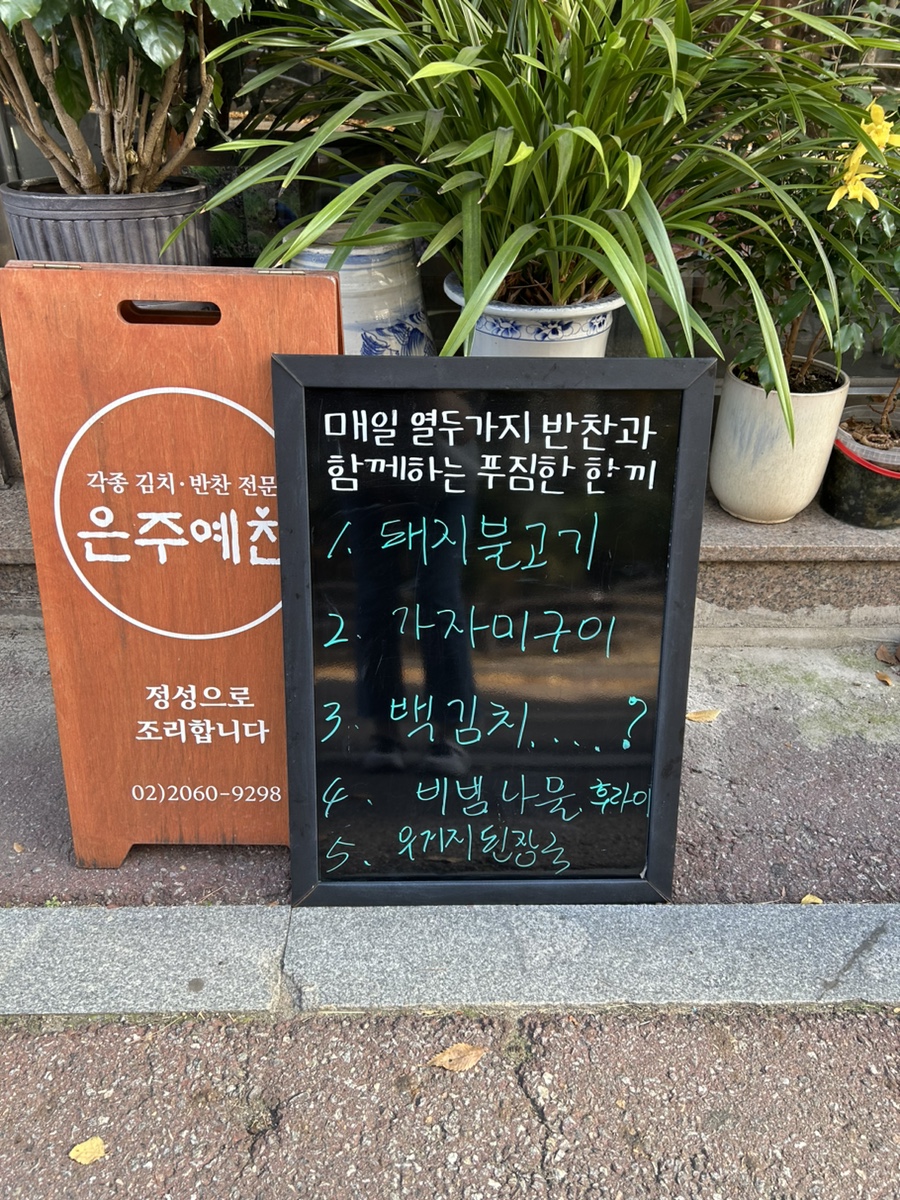 각종 김치·반찬 전문
은주예찬
정성으로
조리합니다
02)2060-9298
매일 열두가지 반찬과
함께하는 푸짐한 한끼
1. 돼지불고기
2. 가자미구이
3. 백김치....?
4. 비빔나물, 후라이
5. 우거지된장국